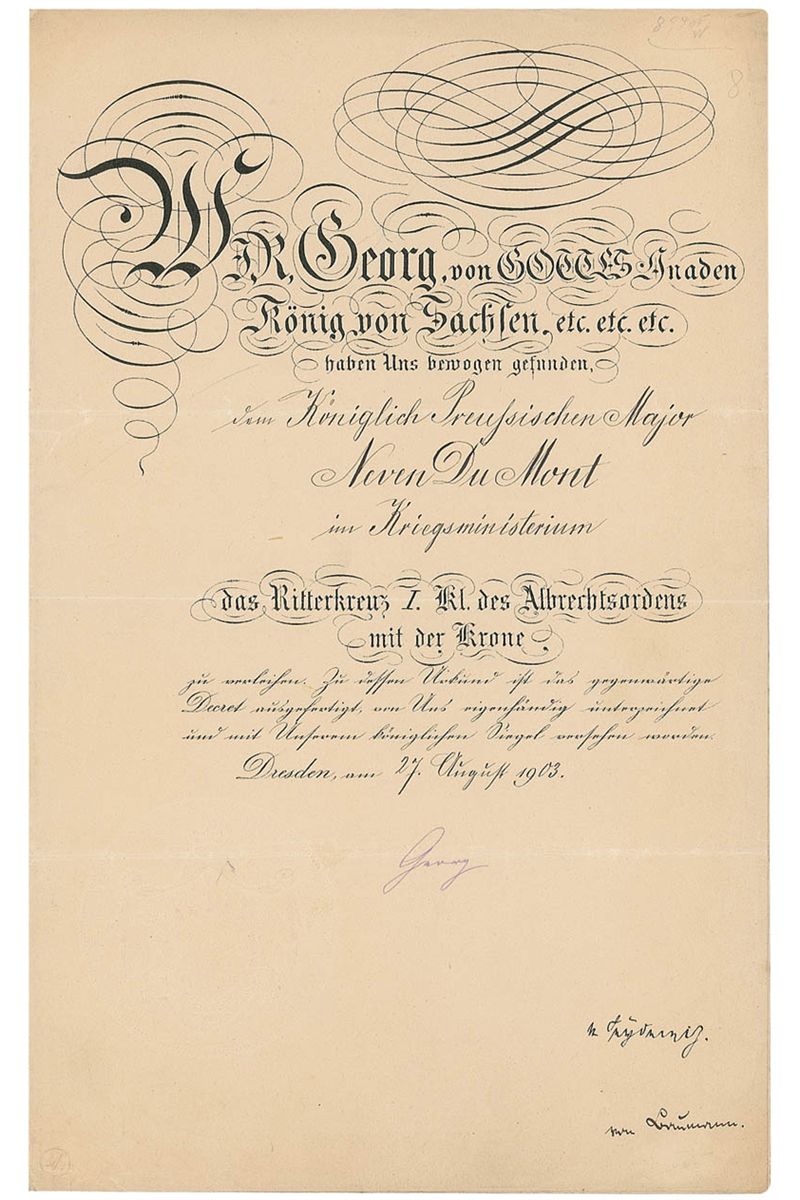 WIR, Georg, von GOTTES Gnaden
König von Sachsen, etc. etc. etc.
haben Uns bewogen gefunden,
dem Königlich Preussischen Major
Neven Du Mont
im Kriegsministerium
das Ritterkreuz I. Kl. des Albrechtsordens
mit der Krone
zu verleihen. Zu dessen Urkund ist das gegenwärtige
Decret ausgefertigt, von Uns eigenhändig unterzeichnet
und mit Unserem königlichen Siegel versehen worden.
Dresden, am 27. August 1903.
Georg
v. Seydewitz.
von Baumann.